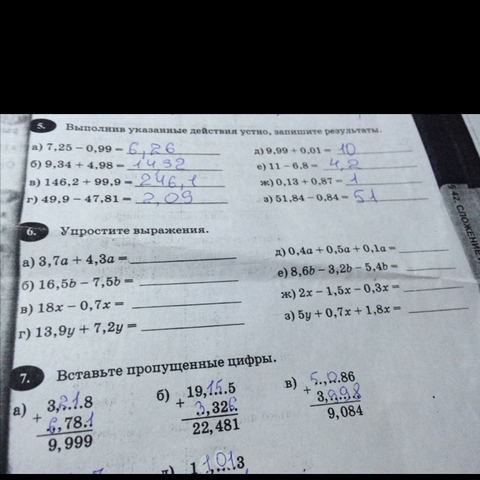 5. Выполнив указанные действия устно, запишите результаты.
а) 7,25 − 0,99 = 6,26
б) 9,34 + 4,98 = 1432
в) 146,2 + 99,9 = 246,1
г) 49,9 − 47,81 = 2,09
д) 9,99 + 0,01 = 10
е) 11 − 6,8 = 4,2
ж) 0,13 + 0,87 = 1
з) 51,84 − 0,84 = 51
§ 42. СЛОЖЕНИЕ
6. Упростите выражения.
а) 3,7a + 4,3a =
б) 16,5b − 7,5b =
в) 18x − 0,7x =
г) 13,9y + 7,2y =
д) 0,4a + 0,5a + 0,1a =
е) 8,6b − 3,2b − 5,4b =
ж) 2x − 1,5x − 0,3x =
з) 5y + 0,7x + 1,8x =
7. Вставьте пропущенные цифры.
а) 3,218
+ 6,781
9,999
б) 19,155
+ 3,326
22,481
в) 5,086
+ 3,998
9,084